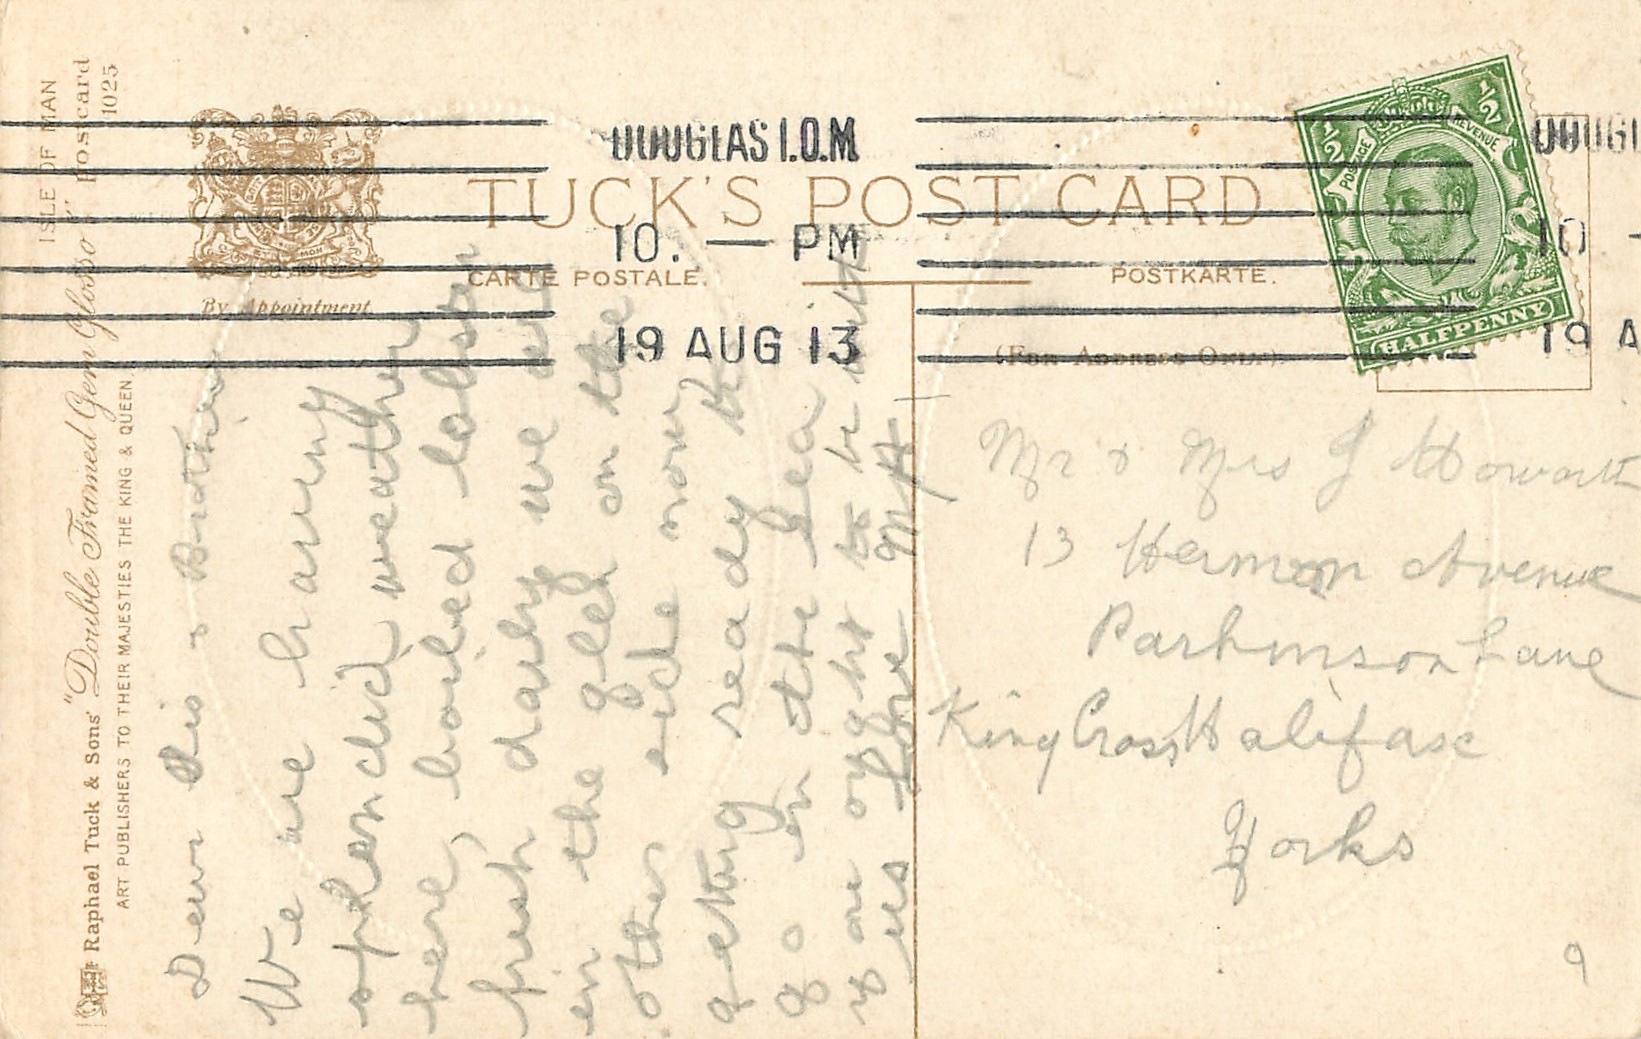 ISLE OF MAN
Raphael Tuck & Sons' "Double Framed Gem Glosso" Postcard 1025
ART PUBLISHERS TO THEIR MAJESTIES THE KING & QUEEN
By Appointment
TUCK'S POST CARD
CARTE POSTALE.
POSTKARTE.
(FOR ADDRESS ONLY)
DOUGLAS I.O.M
10. — PM
19 AUG 13
DOUGL
10 -
19 A
POSTAGE REVENUE
1/2 1/2
HALFPENNY
Dear Sis & Brother
We are having
splendid weather
here, boiled lobster
fresh daily we are
in the glen on the
other side now
getting ready to
go in the sea
you ought to be with
us Love M H
Mr & Mrs J Howarth
13 Hermon Avenue
Parkinson Lane
King Cross Halifax
Yorks
9